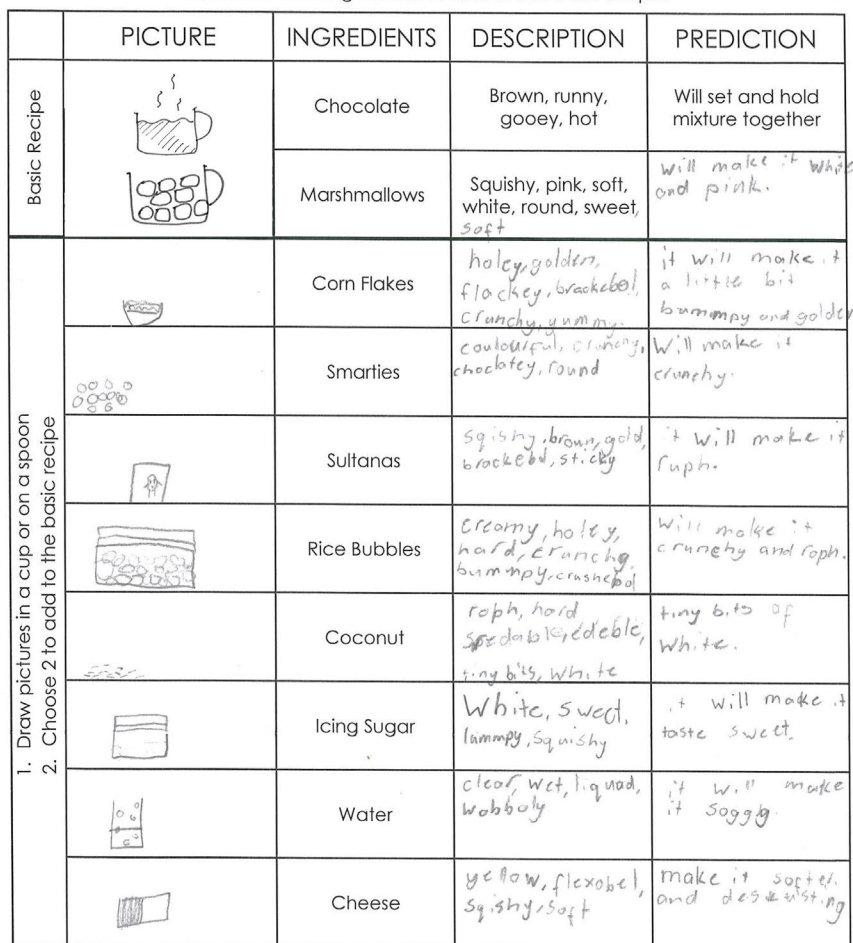 PICTURE INGREDIENTS DESCRIPTION PREDICTION
Basic Recipe
Chocolate
Brown, runny,
gooey, hot
Will set and hold
mixture together
Marshmallows
Squishy, pink, soft,
white, round, sweet,
soft
will make it white
and pink.
1. Draw pictures in a cup or on a spoon
2. Choose 2 to add to the basic recipe
Corn Flakes
holey, golden,
flackey, brackebol,
crunchy, yummy.
it will make it
a little bit
bummpy and golden
Smarties
coulourful, crunchy,
choclatey, round
Will make it
crunchy.
Sultanas
sqishy, brown, gold,
brackebol, sticky
it will make it
ruph.
Rice Bubbles
creamy, holey,
hard, crunchy,
bummpy, crushebol
will make it
crunchy and roph.
Coconut
roph, hard
edeble,
tiny bits, white
tiny bits of
white.
Icing Sugar
White, sweet,
lummpy, squishy
it will make it
taste sweet.
Water
clear, wet, liquad,
wobboly
it will make
it soggy.
Cheese
yellow, flexobel,
sqishy, soft
make it softer.
and